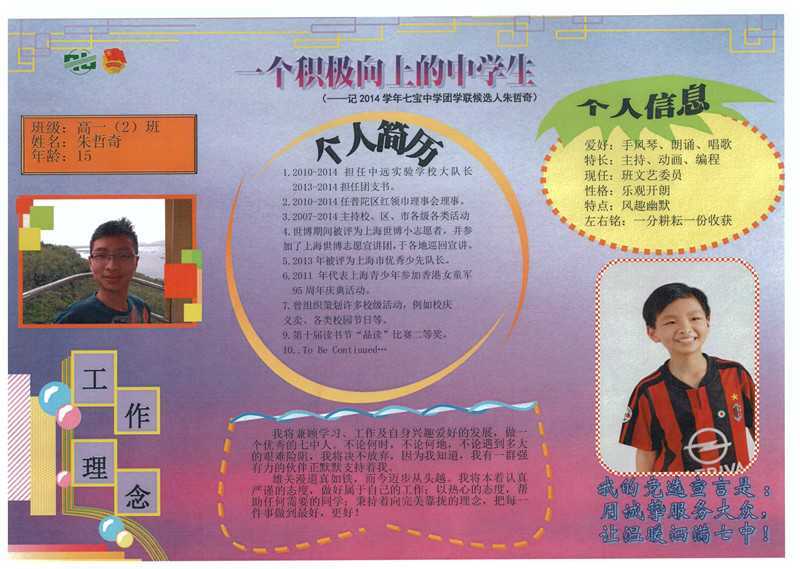 一个积极向上的中学生
(——记2014学年七宝中学团学联候选人朱哲奇)
班级：高一（2）班
姓名：朱哲奇
年龄：15
个人简历
1.2010-2014 担任中远实验学校大队长
2013-2014担任团支书。
2.2010-2014任普陀区红领巾理事会理事。
3.2007-2014主持校、区、市各级各类活动
4.世博期间被评为上海世博小志愿者，并参
加了上海世博志愿宣讲团，于各地巡回宣讲。
5.2013年被评为上海市优秀少先队长。
6.2011 年代表上海青少年参加香港女童军
95周年庆典活动。
7.曾组织策划许多校级活动，例如校庆
义卖、各类校园节日等。
9.第十届读书节“品读”比赛二等奖。
10..To Be Continued…
个人信息
爱好：手风琴、朗诵、唱歌
特长：主持、动画、编程
现任：班文艺委员
性格：乐观开朗
特点：风趣幽默
左右铭：一分耕耘一份收获
工
作
理
念
我将兼顾学习、工作及自身兴趣爱好的发展，做一
个优秀的七中人。不论何时，不论何地，不论遇到多大
的艰难险阻，我将决不放弃，因为我知道，我有一群强
有力的伙伴正默默支持着我。
雄关漫道真如铁，而今迈步从头越。我将本着认真
严谨的态度，做好属于自己的工作；以热心的态度，帮
助任何需要的同学；秉持着向完美靠拢的理念，把每一
件事做到最好，更好！
我的竞选宣言是：
用诚挚服务大众，
让温暖洒满七中！